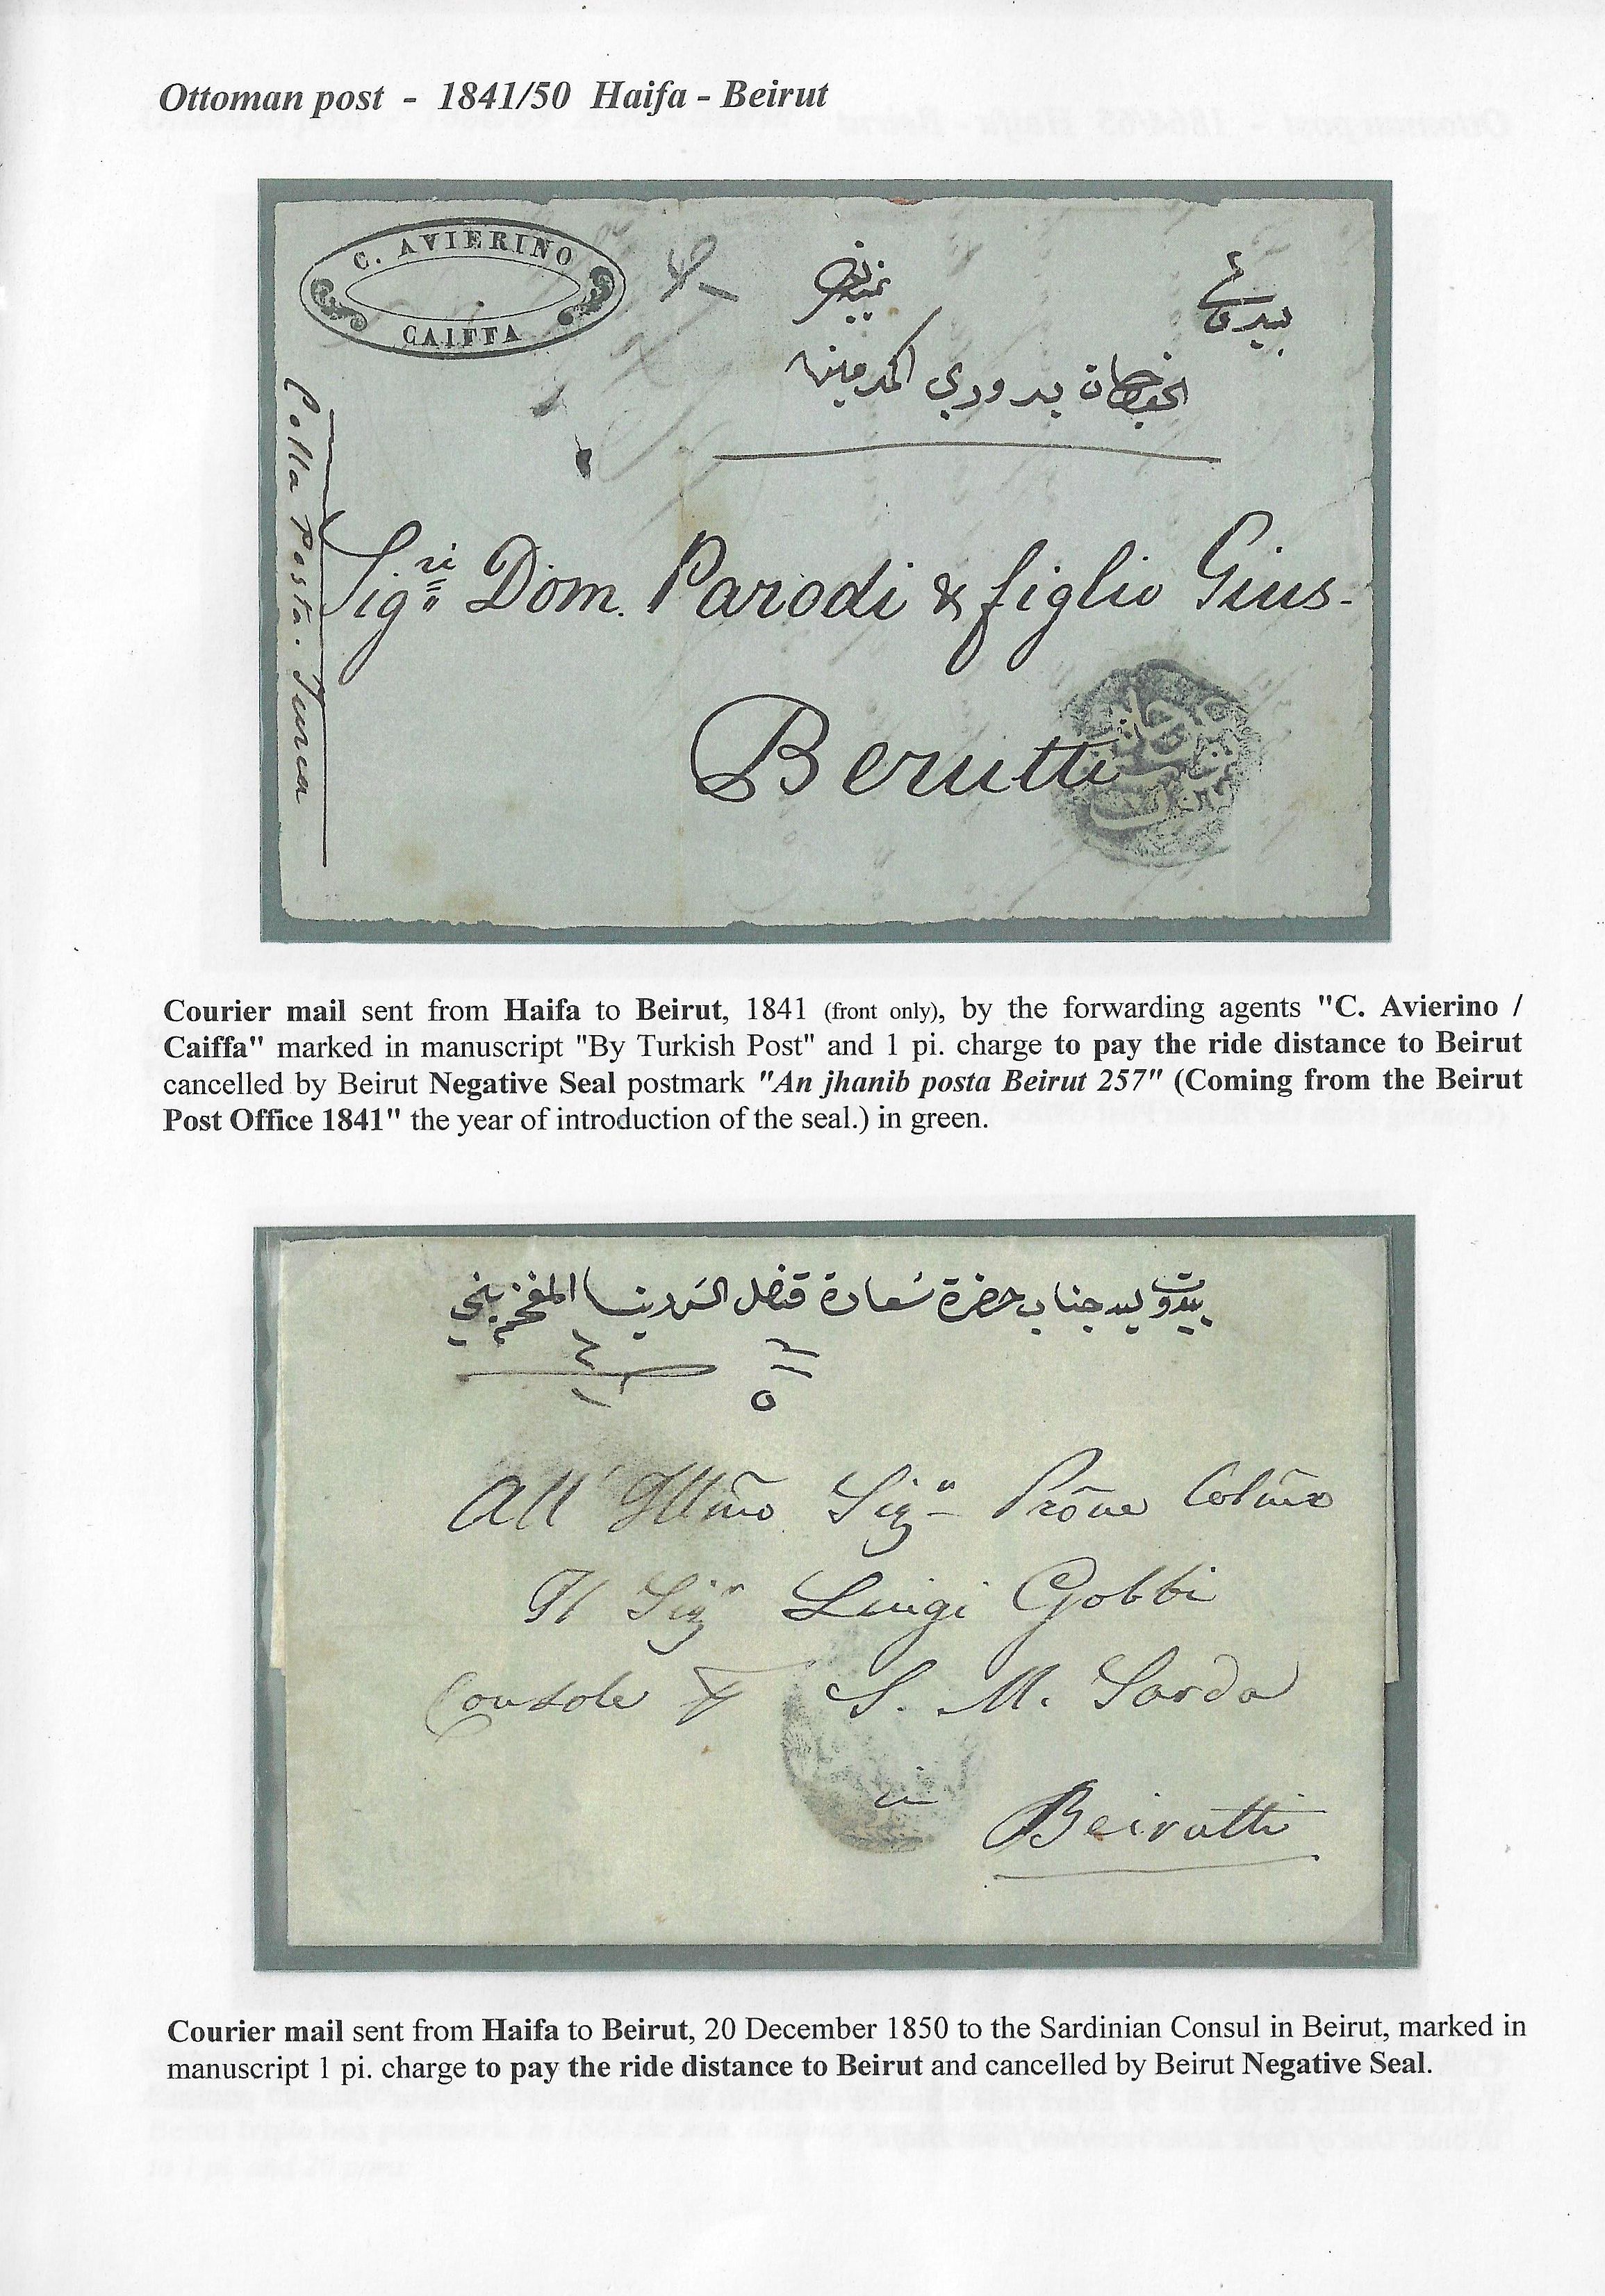 Ottoman post - 1841/50 Haifa - Beirut
C. AVIERINO
CAIFFA
بيروت
الخواجات برودي المكرمين
Colla Posta. Turca
Sig.ri Dom. Parodi & figlio Gius.
Berutti
Courier mail sent from Haifa to Beirut, 1841 (front only), by the forwarding agents "C. Avierino /
Caiffa" marked in manuscript "By Turkish Post" and 1 pi. charge to pay the ride distance to Beirut
cancelled by Beirut Negative Seal postmark "An jhanib posta Beirut 257" (Coming from the Beirut
Post Office 1841" the year of introduction of the seal.) in green.
بيروت ليد جناب حضرة سعادة قنصل السردينا المفخم
All' Illmo Sigr Prone Colmo
Il Sigr Luigi Gobbi
Console S. M. Sarda
a
Beirutti
Courier mail sent from Haifa to Beirut, 20 December 1850 to the Sardinian Consul in Beirut, marked in
manuscript 1 pi. charge to pay the ride distance to Beirut and cancelled by Beirut Negative Seal.